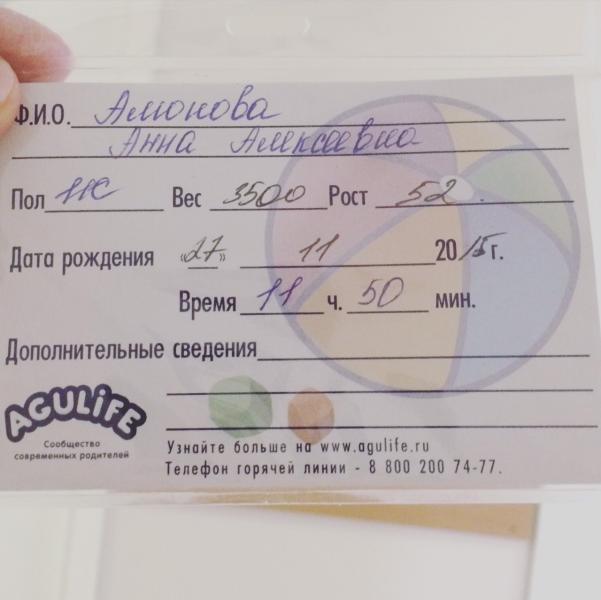 Ф.И.О. Амонова
Анна Алексеевна
Пол ж Вес 3500 Рост 52.
Дата рождения «27» 11 2015г.
Время 11 ч. 50 мин.
Дополнительные сведения
AGULiFE
Сообщество
современных родителей
Узнайте больше на www.agulife.ru
Телефон горячей линии - 8 800 200 74-77.